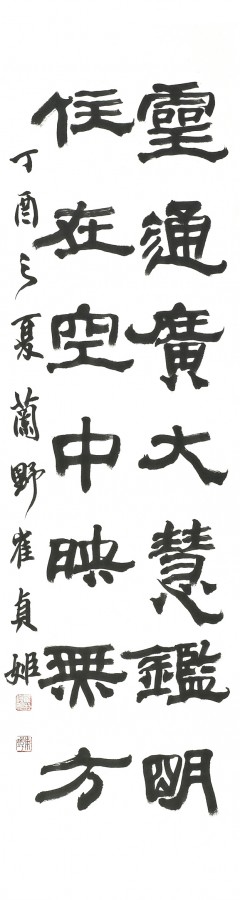 靈通廣大慧鑑明
住在空中映無方
丁酉之夏蘭野崔貞姬